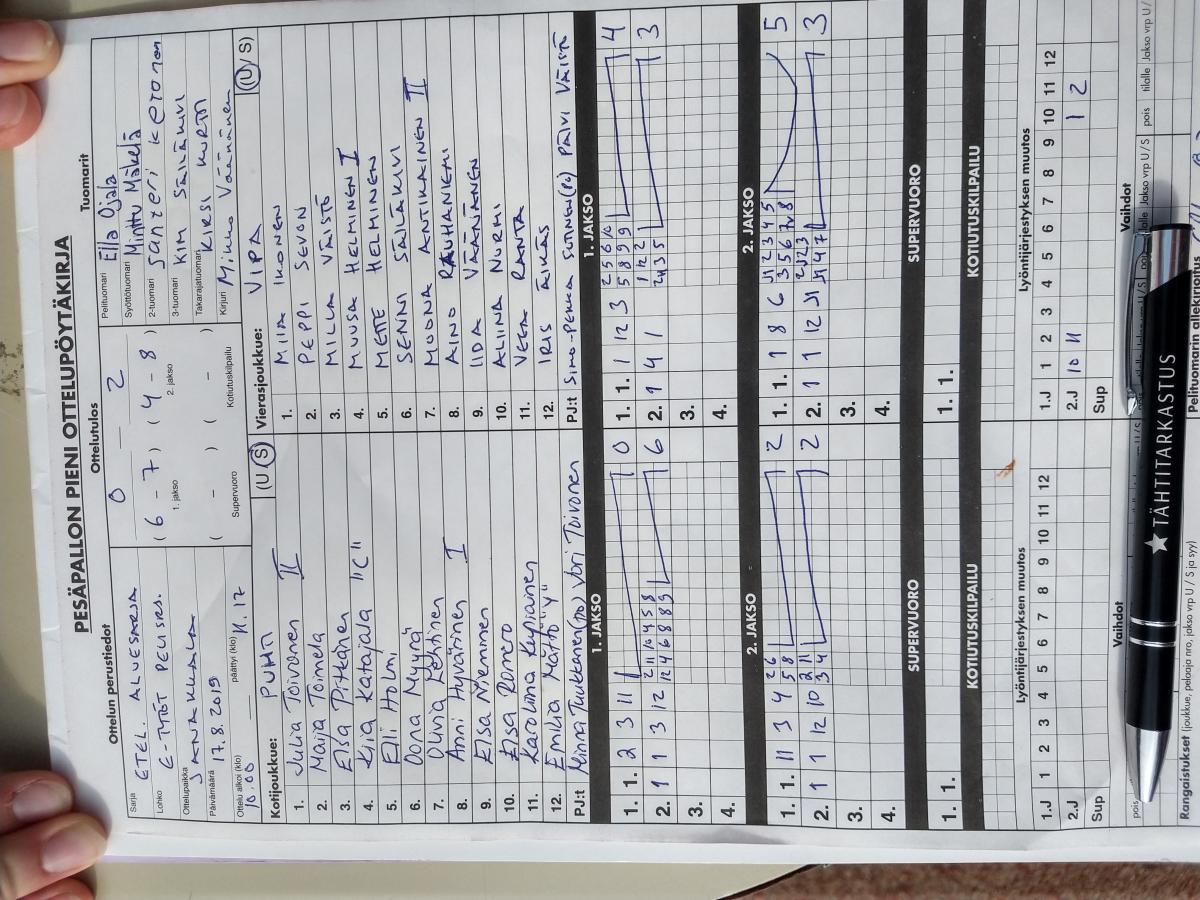 PESÄPALLON PIENI OTTELUPÖYTÄKIRJA
Ottelun perustiedot
Sarja ETEL. ALUESARJA
Lohko E-TYTÖT PELISÄÄ.
Ottelupaikka JANAKKALA
Päivämäärä 17.8.2019
Ottelu alkoi (klo) 10.00 päättyi (klo) 11.17
Ottelutulos
0 – 2
( 6 - 7 ) ( 4 - 8 )
1. jakso 2. jakso
( - ) ( - )
Supervuoro Kotiutuskilpailu
Tuomarit
Pelituomari Ella Ojala
Syöttötuomari Minttu Mäkelä
2-tuomari Janzeri Keronen
3-tuomari KIM SÄILÄKIVI
Takarajatuomari KIRSI KURTTI
Kirjuri Mikko Väänänen
Kotijoukkue: PUHTI (U/S)
1. Julia Toivonen II
2. Maija Toimela
3. Elsa Pitkänen
4. Kiia Kartajala "C"
5. Elli Holmi
6. Oona Myyrä
7. Olivia Lehtinen
8. Anni Hyvärinen I
9. Elsa Nieminen
10. Elsa Romero
11. Karoliina Kupiainen
12. Emilia Mättö "Y"
PJ:t Minna Tiukkanen(po) Vori Toivonen
Vierasjoukkue: VIPA (U/S)
1. MIIA IKONEN
2. PEPPI SEVON
3. MILLA VÄISTÖ
4. MUUSA HELMINEN I
5. METTE HELMINEN
6. SENNI SÄILÄKIVI
7. MOONA ANTIKAINEN II
8. AINO RAUHANIEMI
9. IIDA VÄÄNÄNEN
10. ALIINA NURMI
11. VEERA RANTA
12. IRIS ÄIKÄS
PJ:t SIMO-PEKKA SUTINEN(po) PÄIVI VÄISTÖ
1. JAKSO
1. 1. 2 3 11 0
2. 1 1 3 12 6
3.
4.
1. JAKSO
1. 1. 1 12 3 4
2. 1 4 1 3
3.
4.
2. JAKSO
1. 1. 11 3 4 2
2. 1 1 12 10 2
3.
4.
2. JAKSO
1. 1. 1 8 6 5
2. 1 1 12 3
3.
4.
SUPERVUORO
1. 1.
SUPERVUORO
1. 1.
KOTIUTUSKILPAILU
KOTIUTUSKILPAILU
Lyöntijärjestyksen muutos
1 2 3 4 5 6 7 8 9 10 11 12
1.J
2.J
Sup
Lyöntijärjestyksen muutos
1 2 3 4 5 6 7 8 9 10 11 12
1.J
2.J 10 11 1 2
Sup
Vaihdot
pois
Vaihdot
pois tilalle Jakso vrp U/S pois tilalle Jakso vrp U/
Rangaistukset (joukkue, pelaaja nro, jakso vrp U / S ja syy)
Pelituomarin allekirjoitus
★ TÄHTITARKASTUS